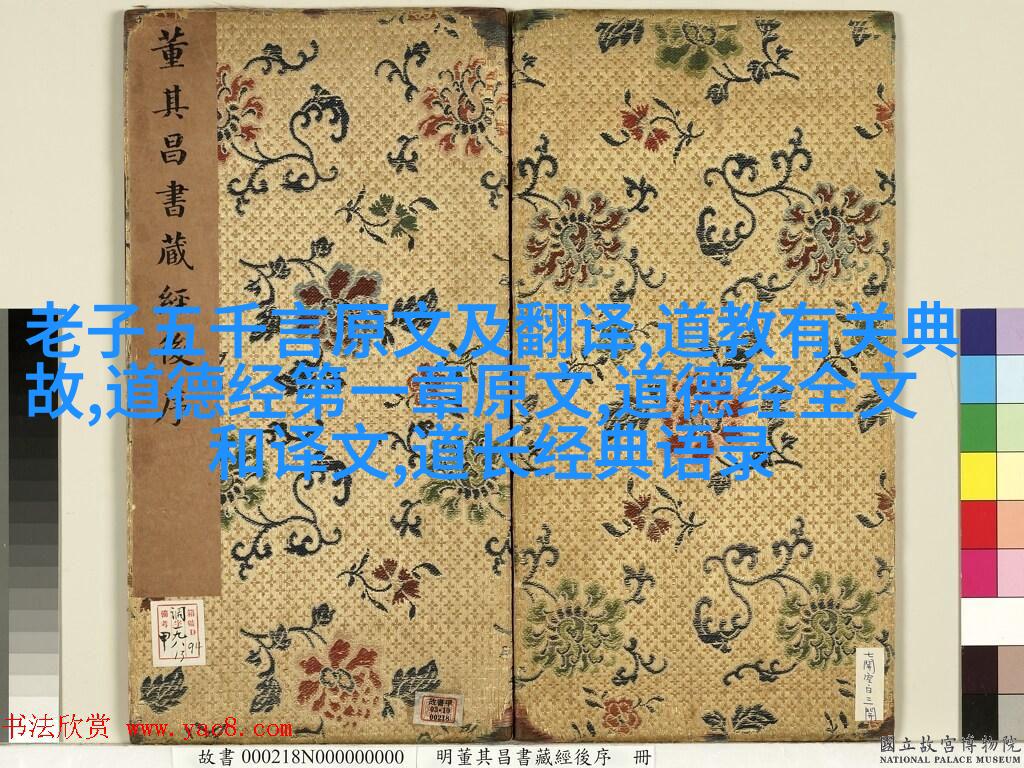 董其昌書藏經後序
老子五千言原文及翻译,道教有关典
故,道德经第一章原文,道德经全文
和译文,道长经典语录
故書甲
03•10
00218
七開空白三開
书法欣赏 www.yac8.com
國立故宮博物院
NATIONAL PALACE MUSEUM
故書 000218N000000000
明董其昌書藏經後序 冊